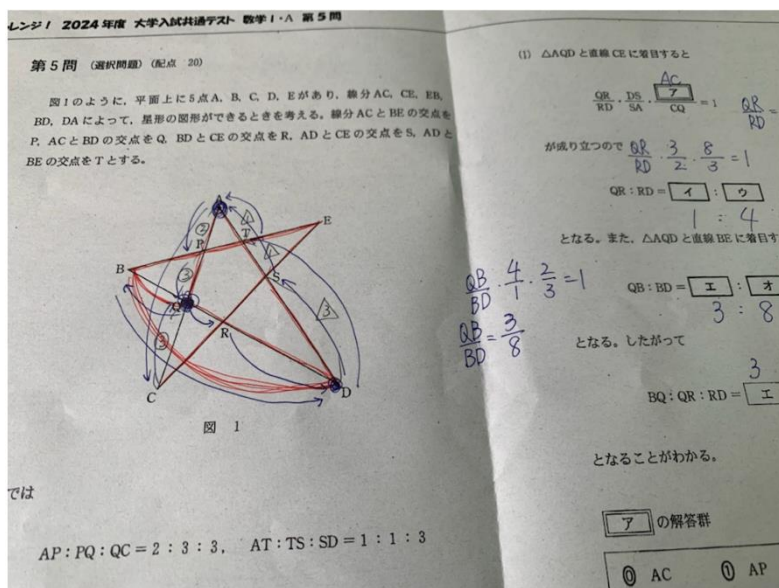 レンジ! 2024年度 大学入試共通テスト 数学I・A 第5問
第5問 (選択問題)(配点 20)
図1のように,平面上に5点A,B,C,D,Eがあり,線分AC,CE,EB,
BD,DAによって,星形の図形ができるときを考える。線分ACとBEの交点を
P,ACとBDの交点をQ,BDとCEの交点をR,ADとCEの交点をS,ADと
BEの交点をTとする。
A
E
② P T 1
B
③ 1 S
Q
③ R 3
C D
図 1
では
AP:PQ:QC=2:3:3, AT:TS:SD=1:1:3
(1) △AQDと直線CEに着目すると
AC
QR/RD・DS/SA・ア/CQ=1
QR/RD=
が成り立つので QR/RD・3/2・8/3=1
QR:RD=イ:ウ
1:4
となる。また,△AQDと直線BEに着目す
QB/BD・4/1・2/3=1
QB:BD=エ:オ
3:8
QB/BD=3/8
となる。したがって
3
BQ:QR:RD=エ
となることがわかる。
アの解答群
⓪ AC ① AP